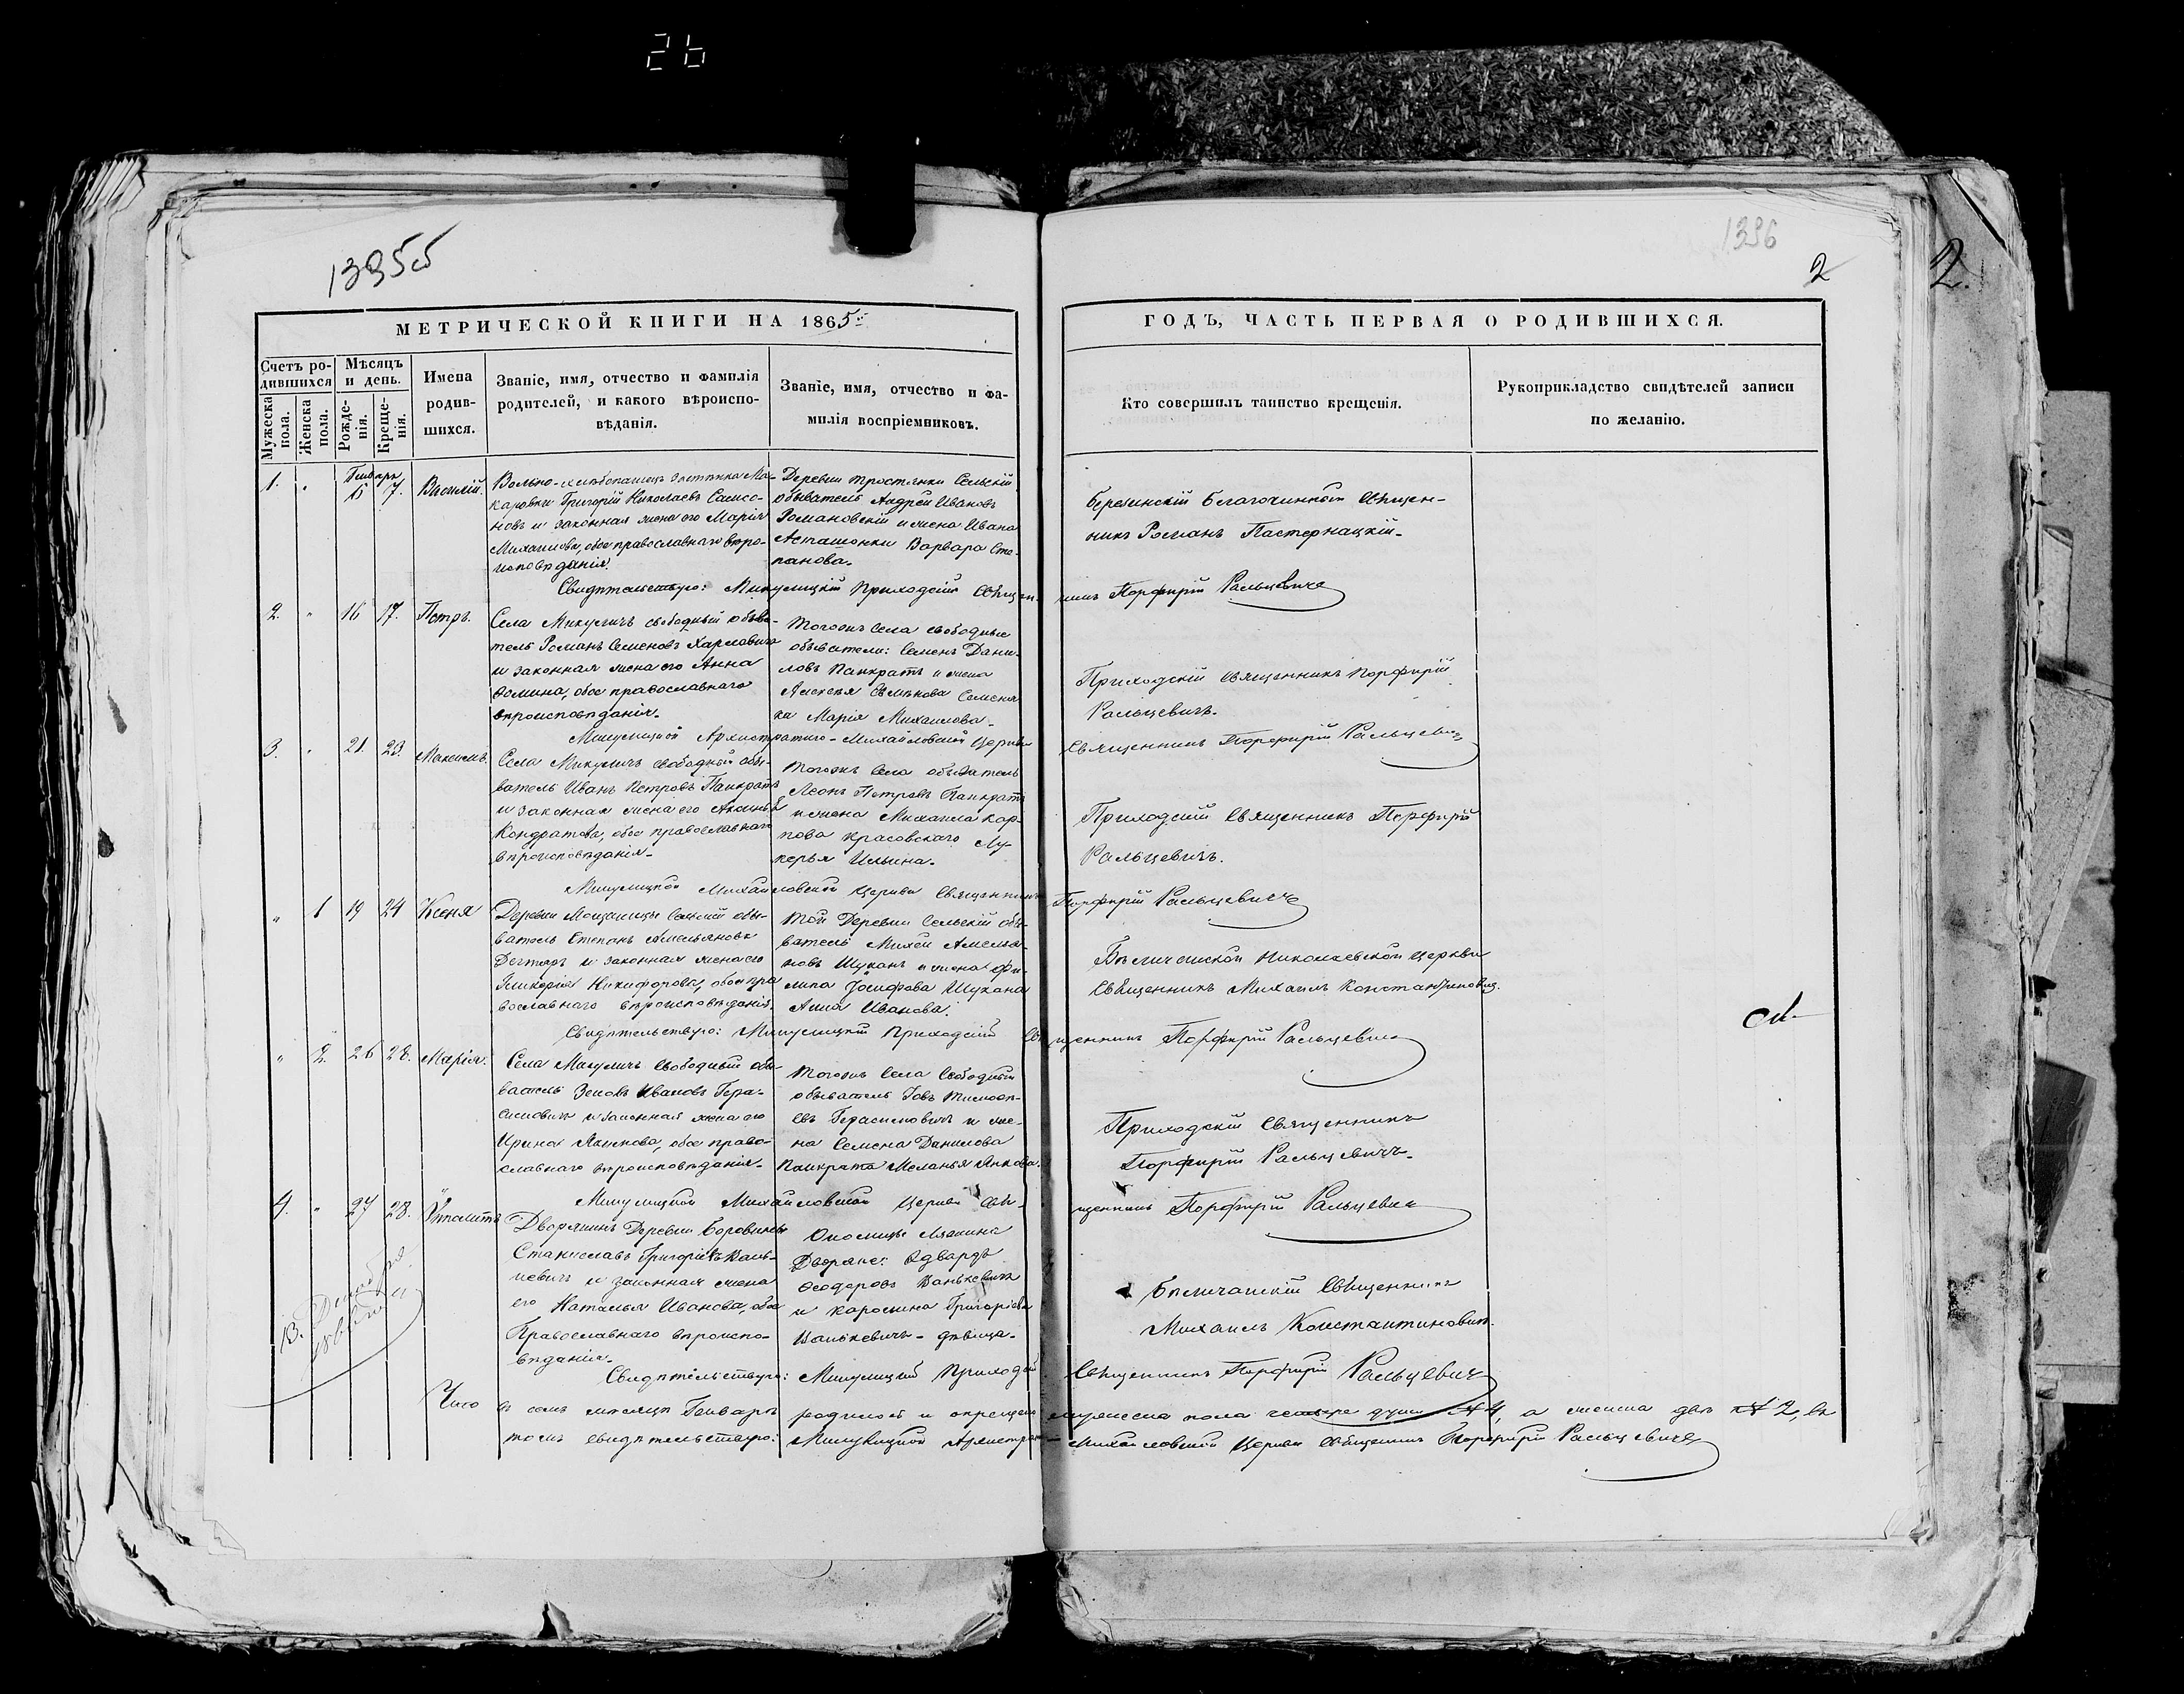 26
1395б
1396
2
2.
МЕТРИЧЕСКОЙ КНИГИ НА 1865й
ГОДЪ, ЧАСТЬ ПЕРВАЯ О РОДИВШИХСЯ.
Счетъ ро-
дившихся
Мужеска пола.
Женска пола.
Мѣсяцъ
и день.
Рожде-
нія.
Креще-
нія.
Имена
родив-
шихся.
Званіе, имя, отчество и фамилія
родителей, и какого вѣроиспо-
вѣданія.
Званіе, имя, отчество и фа-
милія воспріемниковъ.
Кто совершилъ таинство крещенія.
Рукоприкладство свидѣтелей записи
по желанію.
Генварь
1. " 7. Василій.
Вольно-хлѣбопашецъ Ма-
каровки Григорій Николаевъ Самсо-
новъ и законная жена его Марія
Михаилова, обое православнаго вѣро-
исповѣданія.
Деревни Тростянки Сельскій
обыватель Андрей Ивановъ
Романовскій и жена Ивана
Асташонки Варвара Сте-
панова.
Березинскій Благочинный Священ-
никъ Романъ Пастернацкій.
Свидѣтельствую: Микулицкій Приходскій Священ-
никъ ПорфирійРальцевичъ
2. " 16 17. Петръ.
Села Микуличъ свободный обыва-
тель Романъ Семеновъ Харлович
и законная жена его Анна
Фомина, обое православнаго
вѣроисповѣданія.
Тогожъ Села свободные
обыватели: Семенъ Дани-
ловъ Панкратъ и жена
Алексѣя
ка Марія Михаилова.
Приходскій Священникъ Порфирій
Ральцевичъ.
Микулицкой Архистратиго-Михайловской Церкви
Священникъ Порфирій Ральцевичъ
3. " 21. 23. Максимъ.
Села Микуличъ свободный обы-
ватель Иванъ Петровъ Панкратъ
и законная жена его Аксинья
Кондратова, обое православнаго
вѣроисповѣданія.
Тогожъ Села обыватель
Леонъ Петровъ Панкратъ
и жена Михаила Кар-
пова Красовскаго Лу-
керья Ильина.
Приходскій Священникъ Порфирій
Ральцевичъ.
Микулицкой Михайловской Церкви Священникъ
Порфирій Ральцевичъ
" 1 19 24 Ксенія
Деревни Мощаницы Сельскій обы-
ватель Степанъ Амельяновъ
Дегтяръ и законная жена его
Гликерія Никифорова, обое пра
вославнаго вѣроисповѣданія.
Той Деревни Сельскій обы-
ватель Михей Амелья-
новъ Шуканъ и жена Фи-
липа Іосифова Шукана
Анна Иванова.
Бѣличанской Николаевской Церкви
Священникъ Михаилъ Константиновичъ.
Свидѣтельствую: Микулицкій Приходскій Свя-
щенникъ Порфирій Ральцевичъ
" 2. 26 28. Марія.
Села Микуличъ Свободный обы-
ватель Зеновъ Ивановъ Гера-
симовичъ и законная жена его
Ирина Якимова, обое право-
славнаго вѣроисповѣданія.
Тогожъ Села Свободный
обыватель Іовъ Тимофе-
евъ Герасимовичъ и же-
на Семена Данилова
Панкрата Меланья Янкова.
Приходскій Священникъ
Порфирій Ральцевичъ.
Микулицкой Михайловской Церкви Свя-
щенникъ Порфирій Ральцевичъ
4. " 27 28. Ипполитъ
Дворянинъ Деревни Боровины
Станиславъ Григоріевъ Вань-
кевичъ и законная жена
его Наталья Иванова, обое
Православнаго вѣроиспо-
вѣданія.
Околицы
Дворяне: Эдвардъ
Феодоровъ Ванькевичъ
и Каролина Григоріева
Ванькевичъ - дѣвица.
Бѣличанскій Священникъ
Михаилъ Константиновичъ.
Свидѣтельствую: Микулицкій Приходскій
Священникъ Порфирій Ральцевичъ
Итого въ семъ мѣсяцѣ Генварѣ родилось и окрещено мужеска пола четыре души №4, а женска двѣ №2, въ
томъ свидѣтельствую: Микулицкой Архистрати-Михайловской Церкви Священникъ Порфирій Ральцевичъ